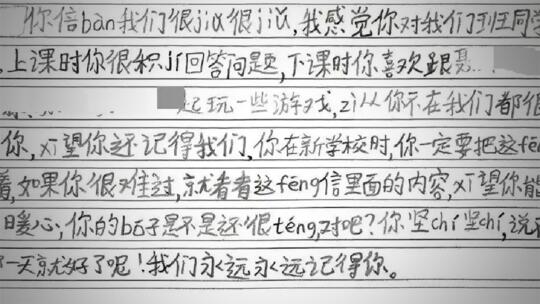 你信bàn我们很jiǔ很jiǔ,我感觉你对我们班同学
,上课时你很积jí回答问题,下课时你喜欢跟
起玩一些游戏,zì从你不在我们都很
你,xī望你还记得我们,你在新学校时,你一定要把这fēn
着,如果你很难过,就看看这fēng信里面的内容,xī望你能
暖心;你的bó子是不是还很téng,对吧?你坚chí坚chí,说
一天就好了呢!我们永远永远记得你。